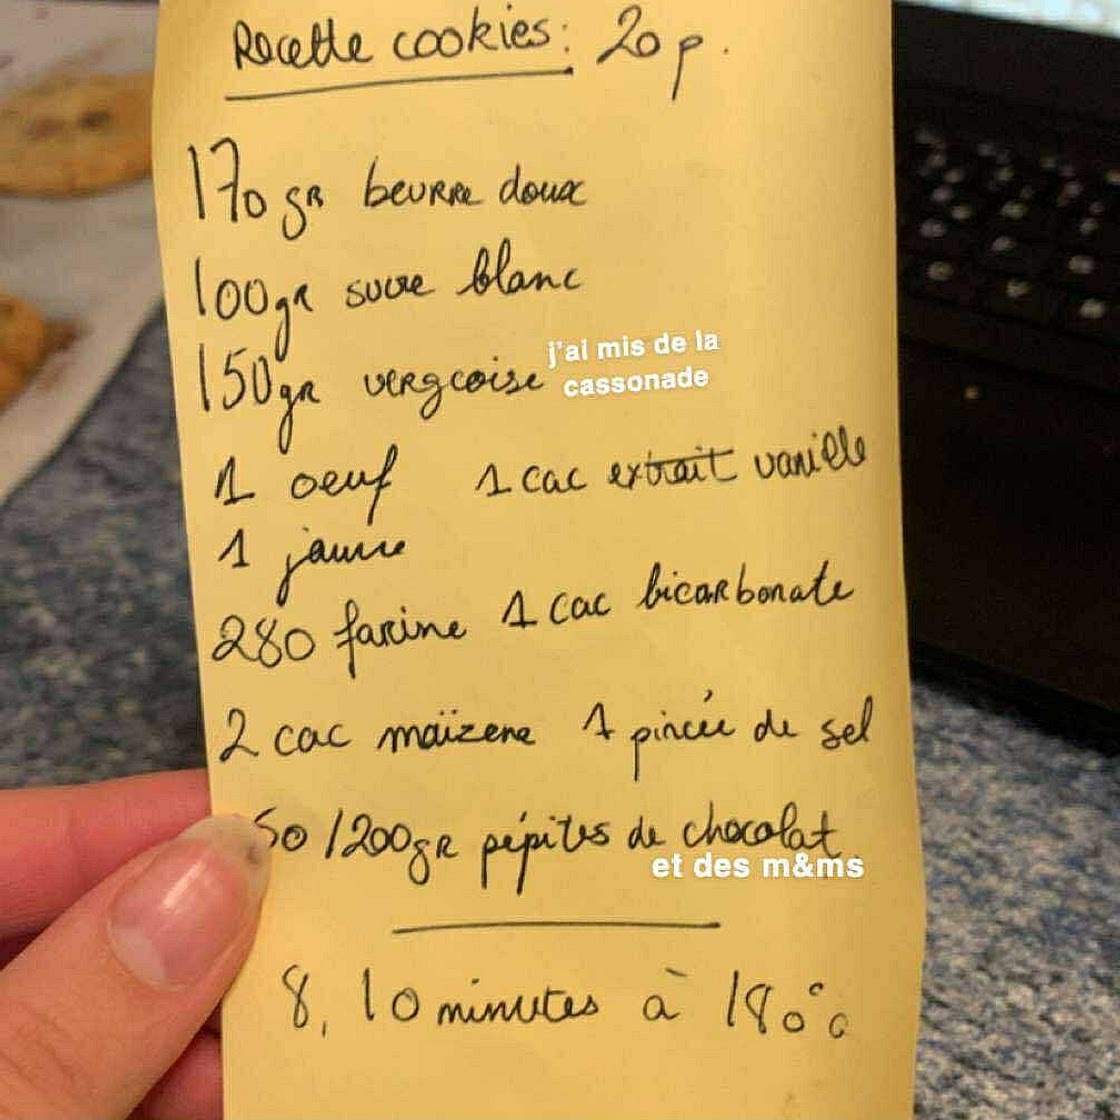 Recette cookies: 20 p.
170 gr beurre doux
100gr sucre blanc
150gr vergeoise j'ai mis de la
cassonade
1 oeuf 1 cac extrait vanille
1 jaune
280 farine 1 cac bicarbonate
2 cac maïzena 1 pincée de sel
50 /200gr pépites de chocolat
et des m&ms
8, 10 minutes à 180°c